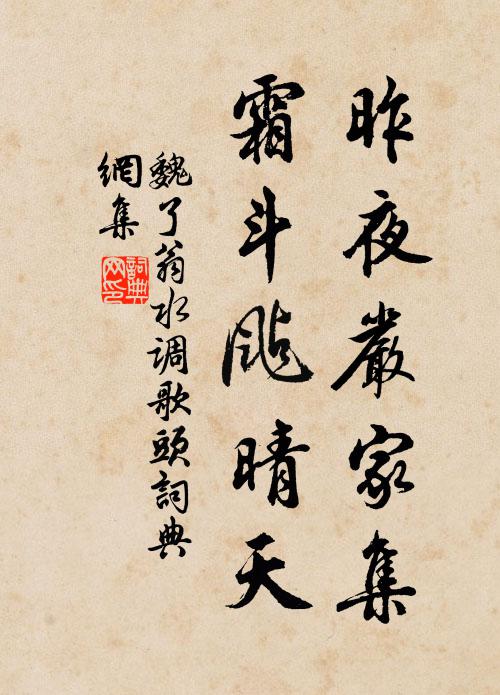 昨夜嚴家集
霜斗颭晴天
魏了翁水调歌頭詞典
網集
詞典
网印